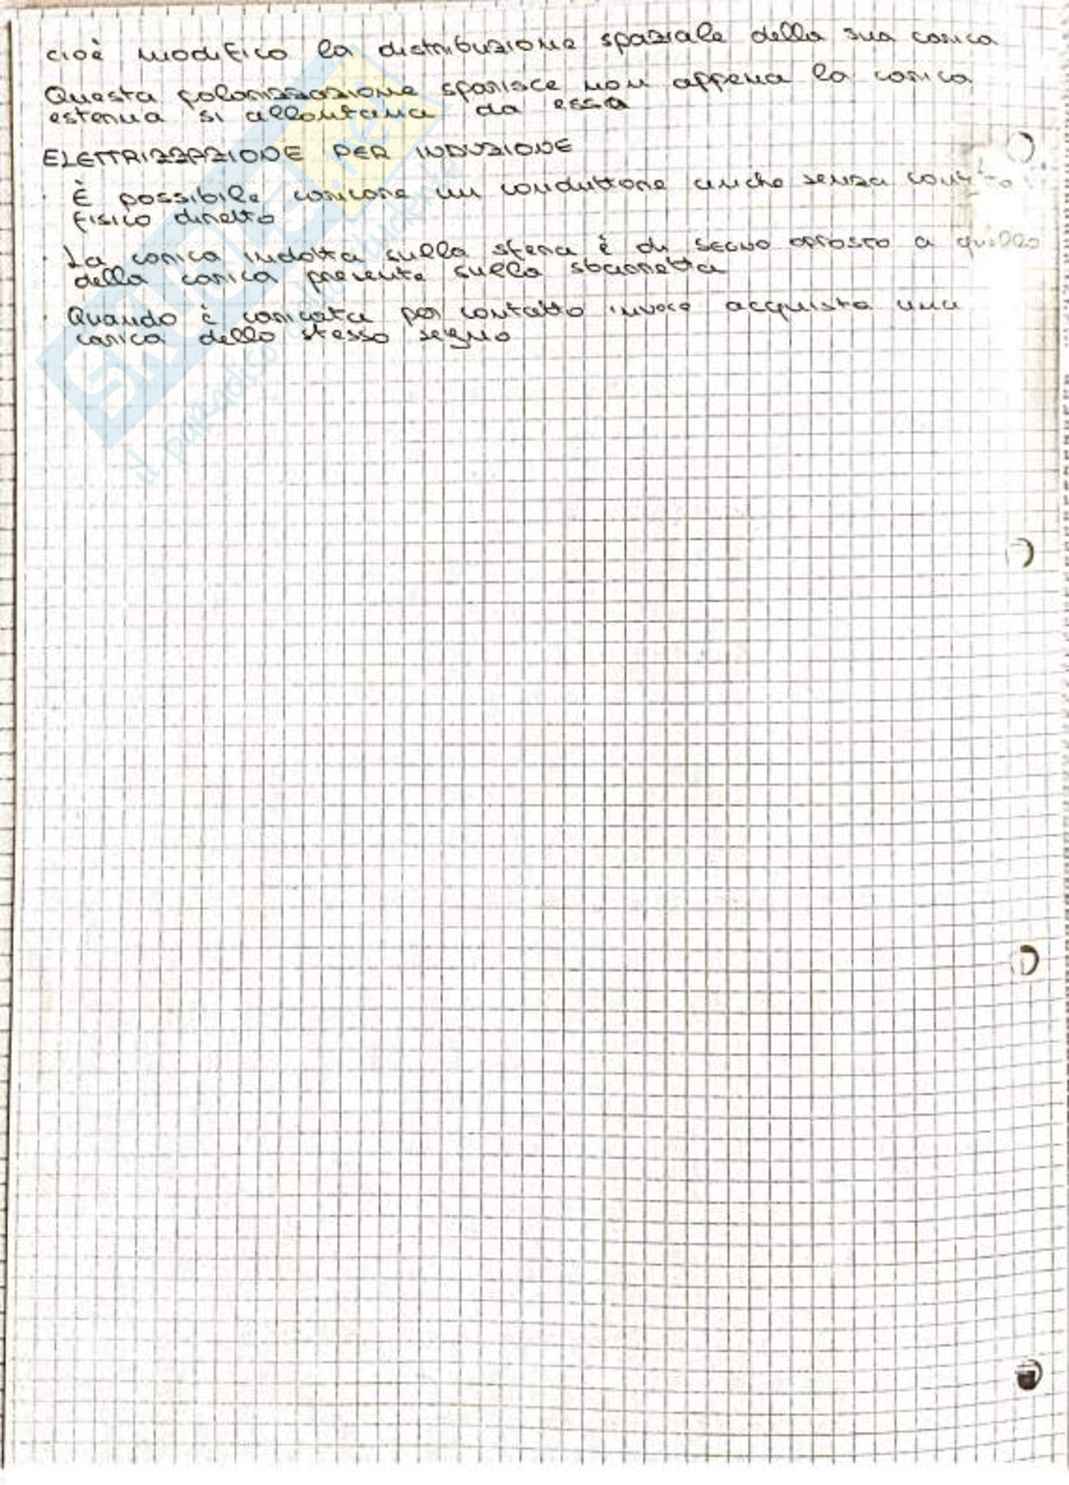 cioè modifico la distribuzione spaziale della sua carica
Questa polarizzazione sparisce non appena la carica
esterna si allontana da essa
ELETTRIZZAZIONE PER INDUZIONE
· È possibile caricare un conduttore anche senza contatto
fisico diretto
· La carica indotta sulla sfera è di segno opposto a quello
della carica presente sulla sbarretta
· Quando è caricata per contatto invece acquista una
carica dello stesso segno